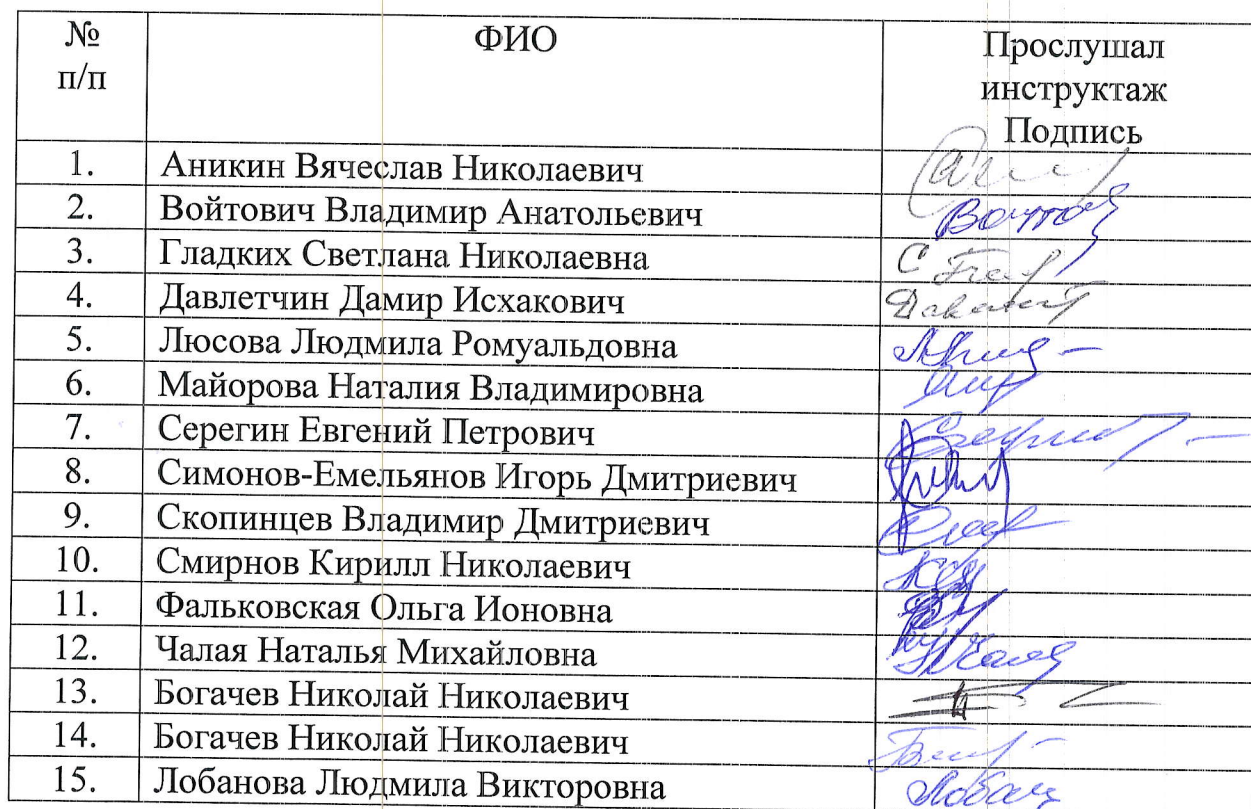 № п/п ФИО Прослушал инструктаж Подпись
1. Аникин Вячеслав Николаевич
2. Войтович Владимир Анатольевич
3. Гладких Светлана Николаевна
4. Давлетчин Дамир Исхакович
5. Люсова Людмила Ромуальдовна
6. Майорова Наталия Владимировна
7. Серегин Евгений Петрович
8. Симонов-Емельянов Игорь Дмитриевич
9. Скопинцев Владимир Дмитриевич
10. Смирнов Кирилл Николаевич
11. Фальковская Ольга Ионовна
12. Чалая Наталья Михайловна
13. Богачев Николай Николаевич
14. Богачев Николай Николаевич
15. Лобанова Людмила Викторовна